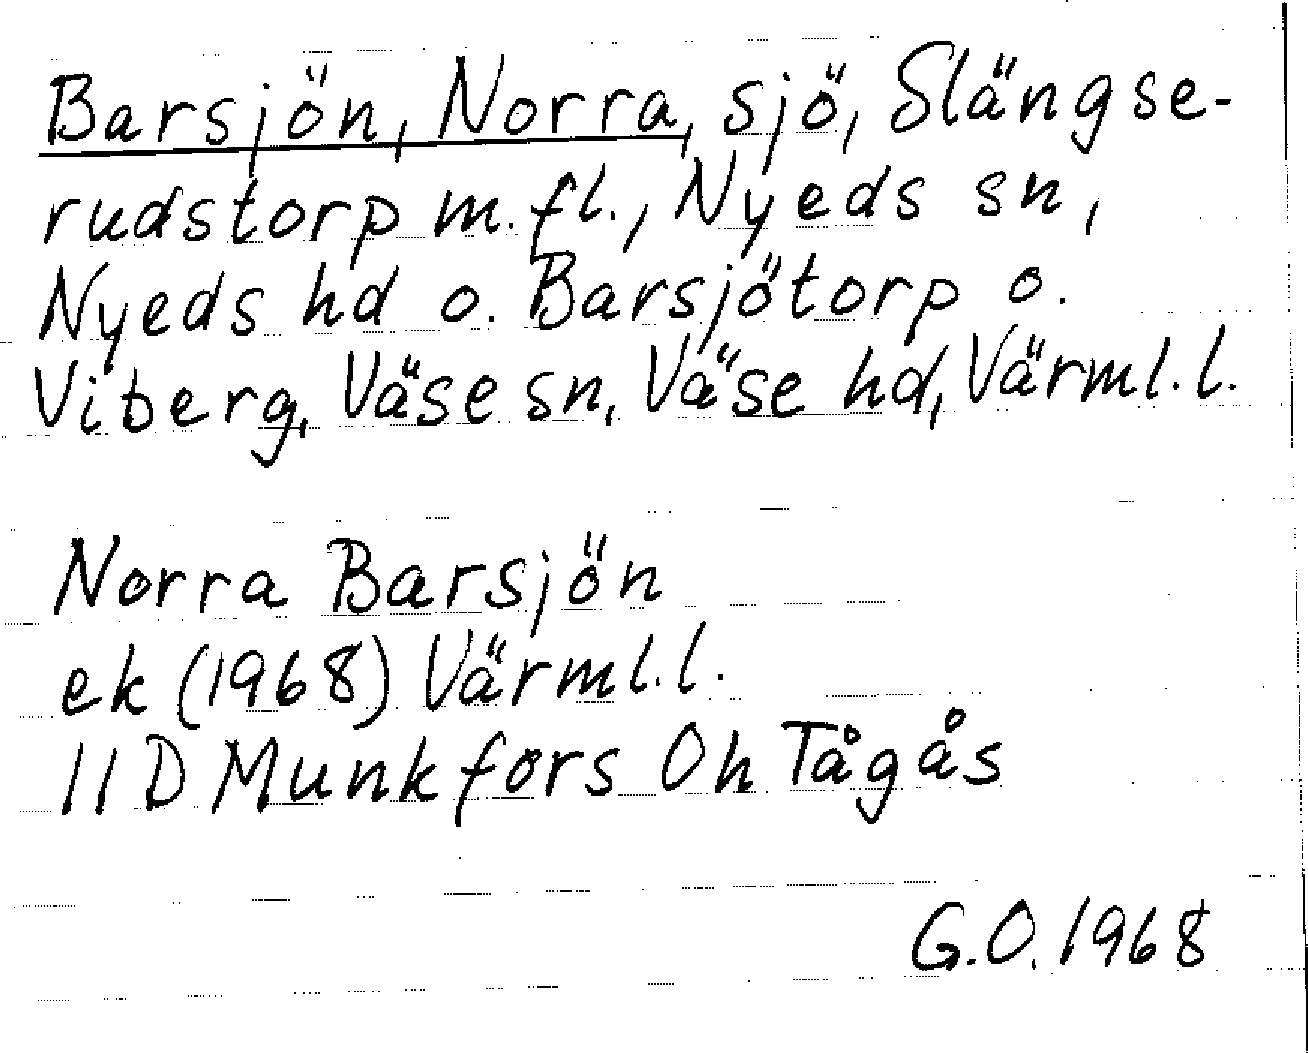 Barsjön, Norra, sjö, Slängse-
rudstorp m.fl., Nyeds sn,
Nyeds hd o. Barsjötorp o.
Viberg, Väse sn, Väse hd, Värml.l.
Norra Barsjön
ek (1968) Värml.l.
11D Munkfors Oh Tågås
G.O. 1968